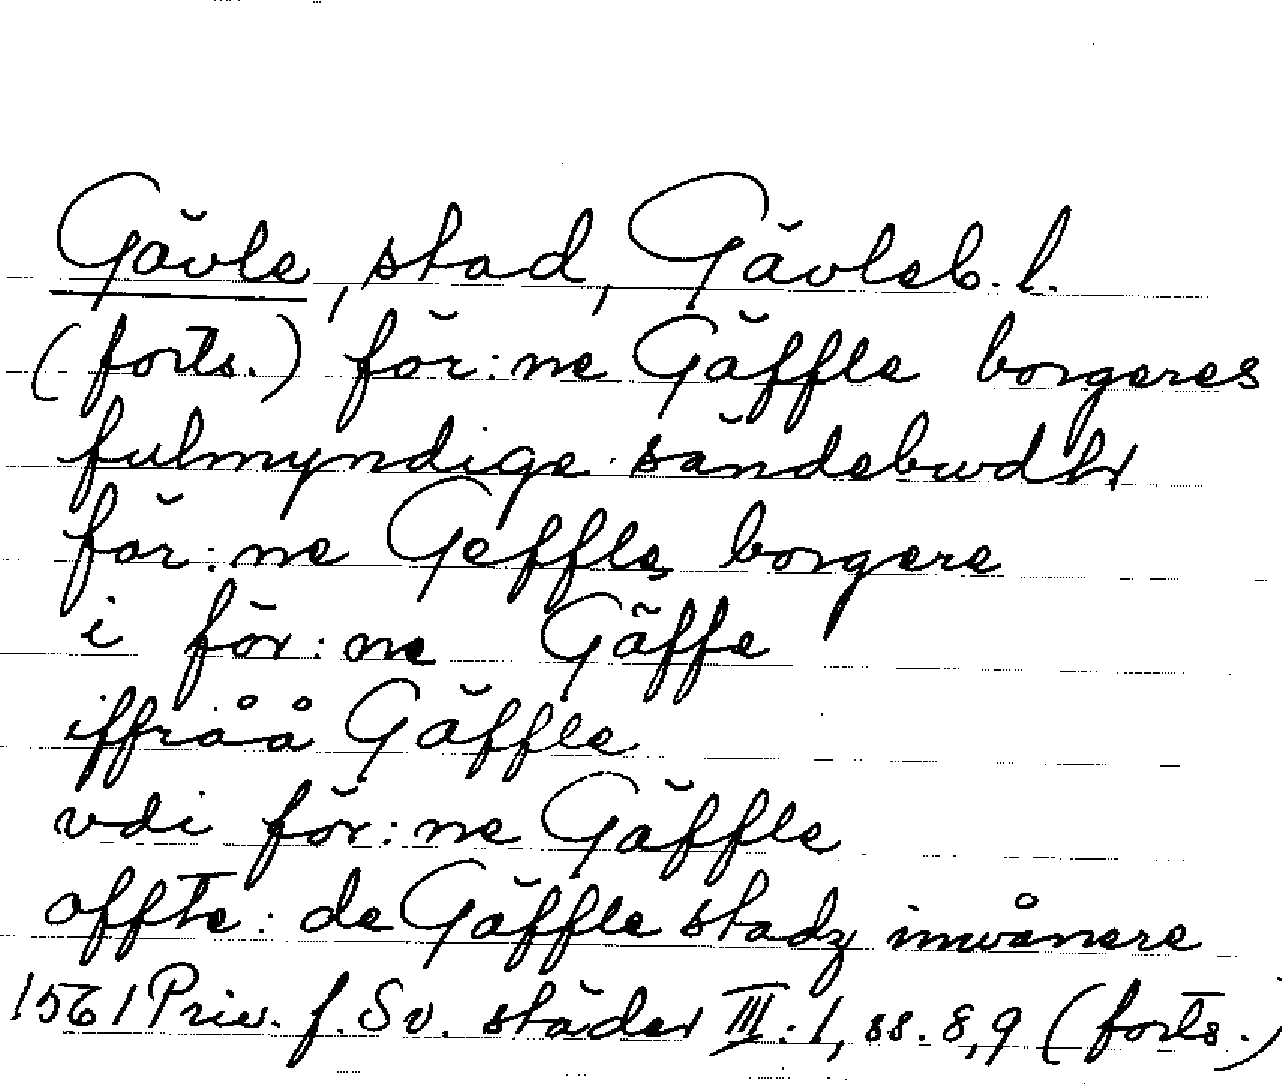 Gävle, stad, Gävleb. l.
(forts.) för:ne Gäffle borgeres
fulmyndige sändebwdhr
för:ne Geffle borgere
i för:ne Gäffe
iffråå Gäffle
vdi för:ne Gäffle
offte:de Gäffle stadz inwånere
1561 Priv. f. Sv. städer III:1, ss. 8,9 (forts.)